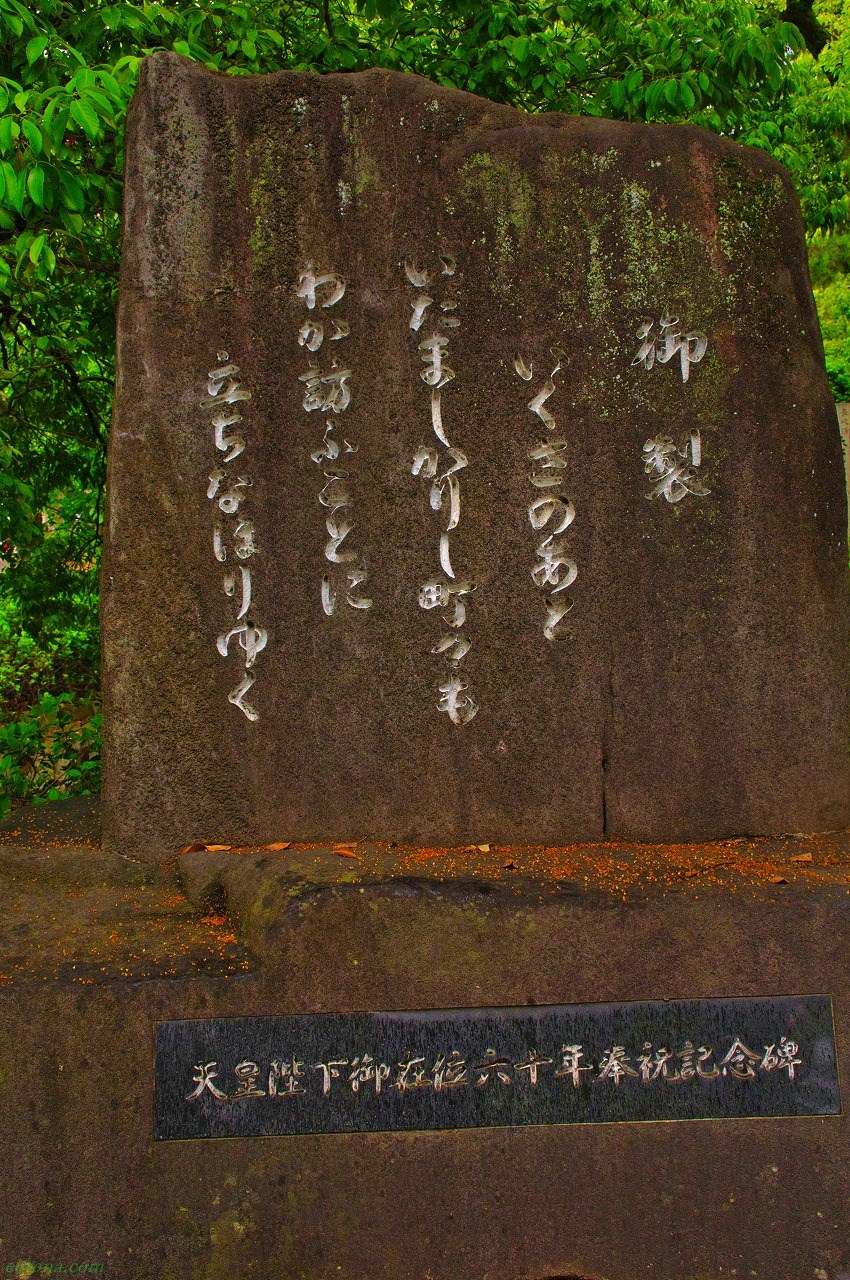 御製
いくさのあと
いたましかりし町々も
わか訪ふことに
立ちなほりゆく
天皇陛下御在位六十年奉祝記念碑